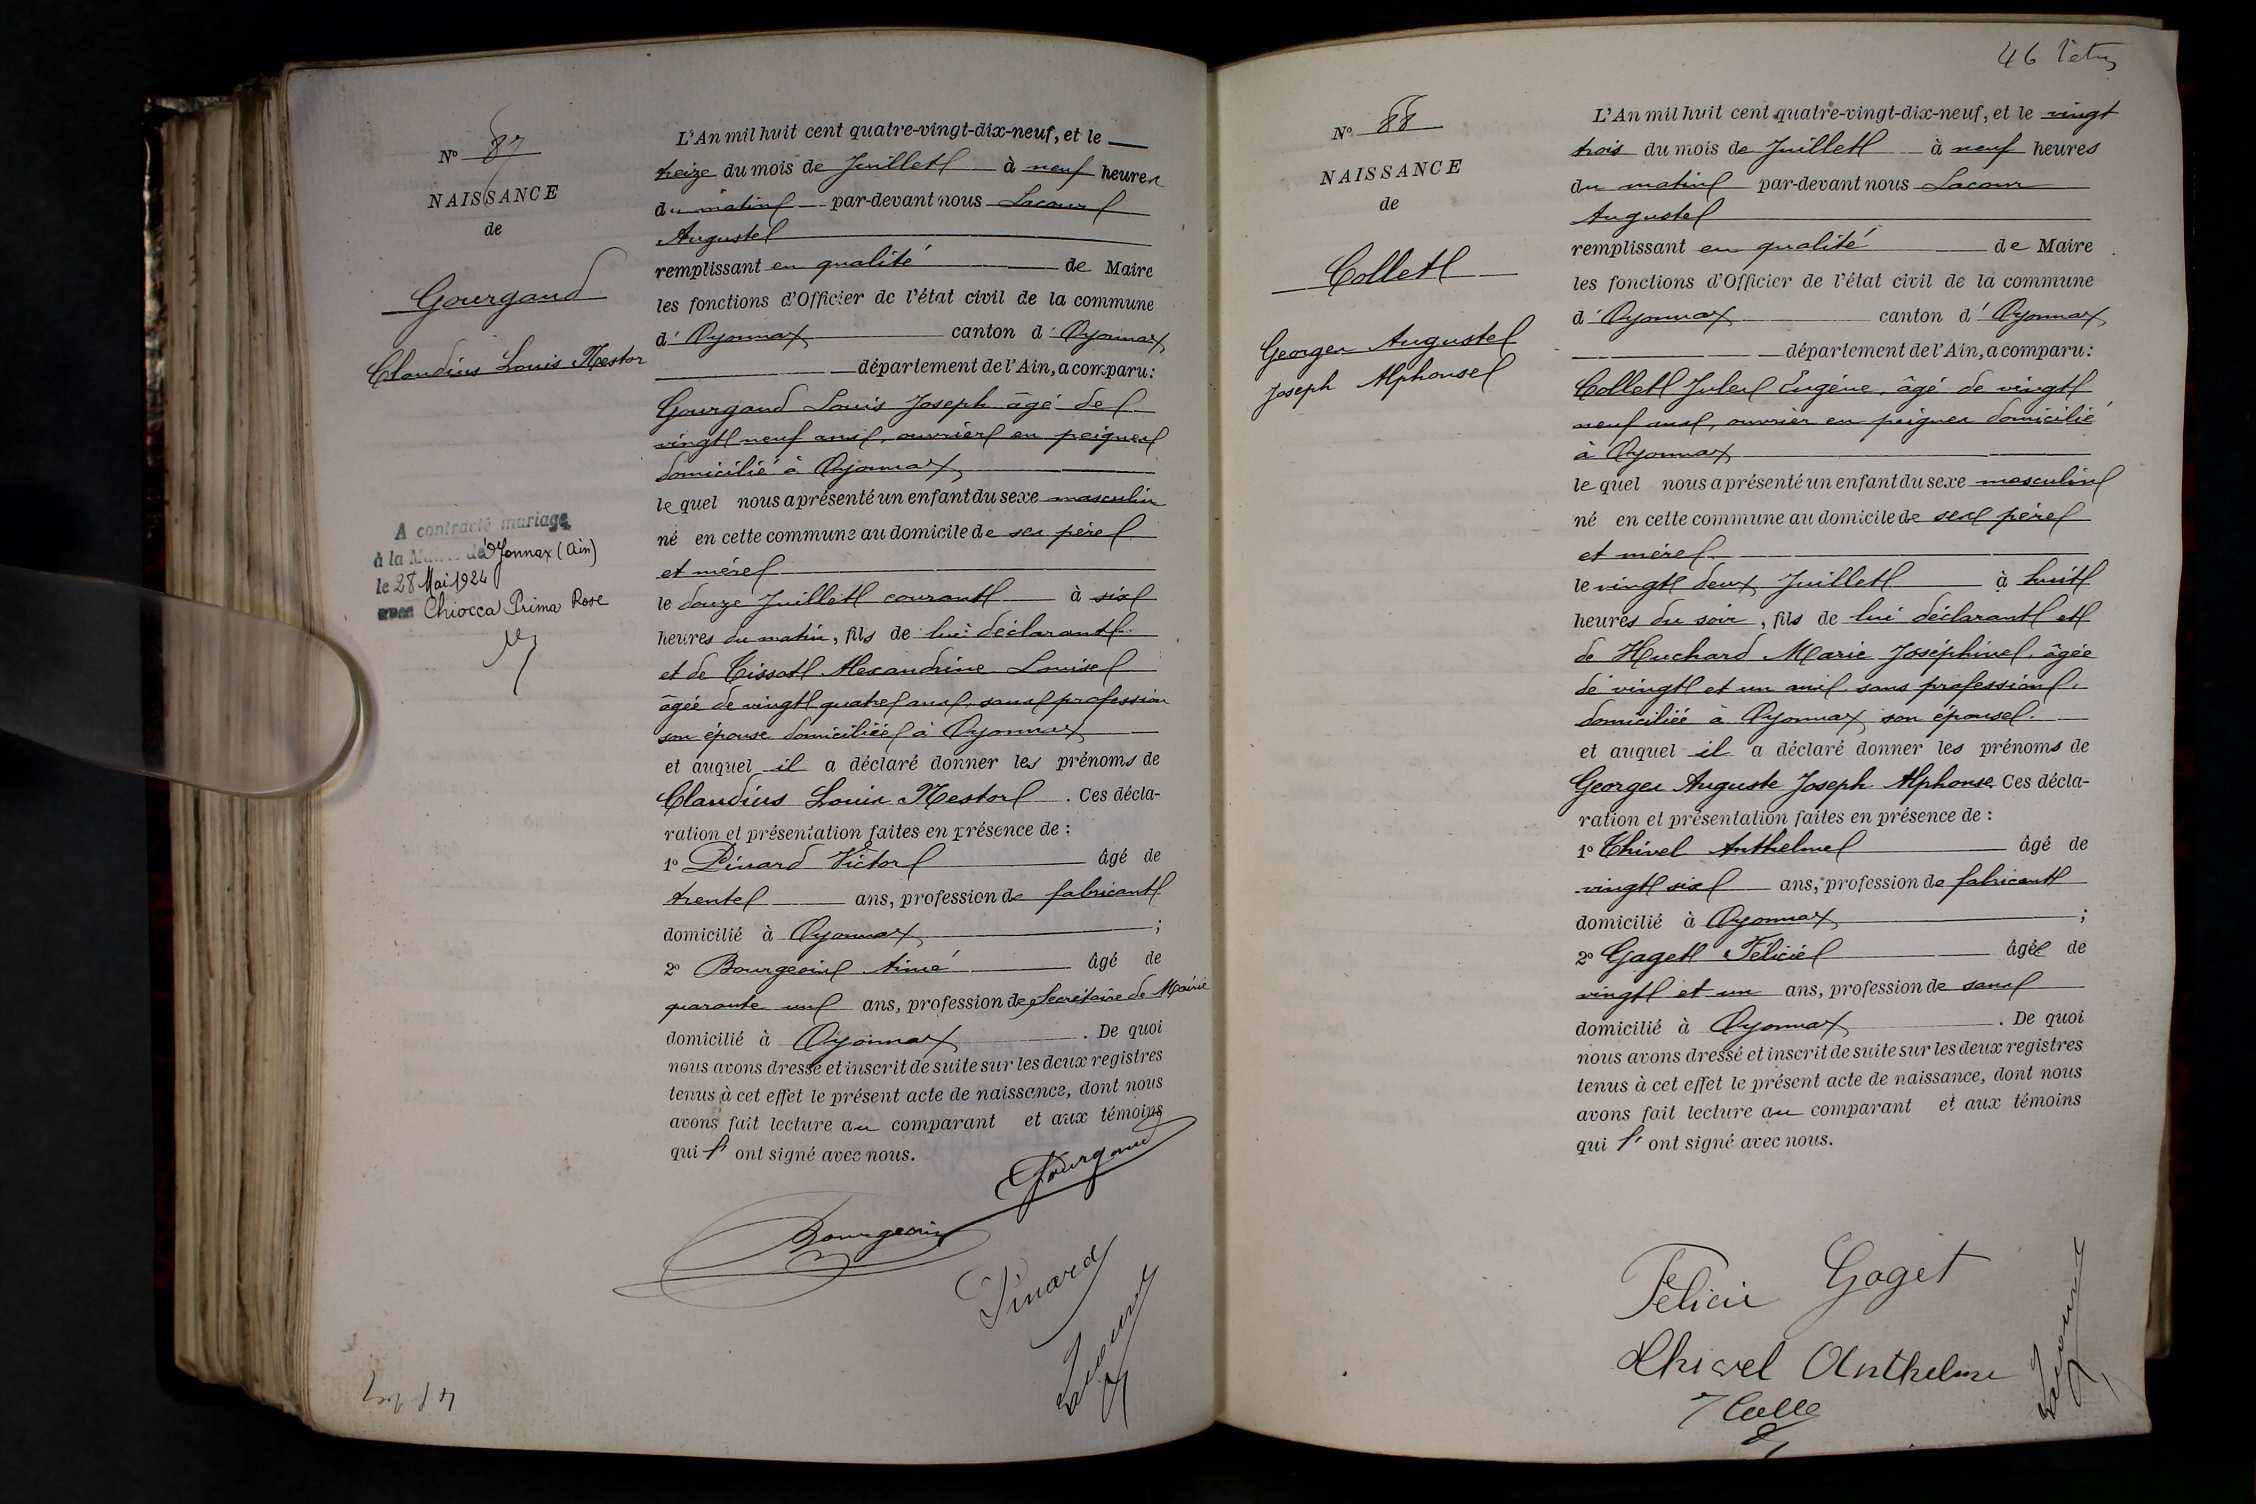 N° 87
NAISSANCE
de
Gourgaud
Claudius Louis Nestor
A contracté mariage
à la Mairie de Oyonnax (Ain)
le 28 Mai 1924
avec Chiocca Prima Rose
L'An mil huit cent quatre-vingt-dix-neuf, et le
treize du mois de Juillet à neuf heures
du matin par-devant nous Lacour
Auguste
remplissant en qualité de Maire
les fonctions d'Officier de l'état civil de la commune
d'Oyonnax canton d'Oyonnax
département de l'Ain, a comparu:
Gourgaud Louis Joseph âgé de
vingt neuf ans, ouvrier en peignes
domicilié à Oyonnax
lequel nous a présenté un enfant du sexe masculin
né en cette commune au domicile de ses père
et mère
le douze Juillet courant à six
heures du matin, fils de lui déclarant
et de Tissot Alexandrine Louise
âgée de vingt quatre ans, sans profession
son épouse domiciliée à Oyonnax
et auquel il a déclaré donner les prénoms de
Claudius Louis Nestor. Ces décla-
ration et présentation faites en présence de :
1° Pinard Victor âgé de
trente ans, profession de fabricant
domicilié à Oyonnax ;
2° Bourgeois Aimé âgé de
quarante un ans, profession de Secrétaire de Mairie
domicilié à Oyonnax. De quoi
nous avons dressé et inscrit de suite sur les deux registres
tenus à cet effet le présent acte de naissance, dont nous
avons fait lecture au comparant et aux témoins
qui l'ont signé avec nous.
Gourgaud
Bourgeois
Pinard
Lacour
46
N° 88
NAISSANCE
de
Collet
Georges Auguste
Joseph Alphonse
L'An mil huit cent quatre-vingt-dix-neuf, et le vingt
trois du mois de Juillet à neuf heures
du matin par-devant nous Lacour
Auguste
remplissant en qualité de Maire
les fonctions d'Officier de l'état civil de la commune
d'Oyonnax canton d'Oyonnax
département de l'Ain, a comparu:
Collet Jules Eugène, âgé de vingt
neuf ans, ouvrier en peignes domicilié
à Oyonnax
lequel nous a présenté un enfant du sexe masculin
né en cette commune au domicile de ses père
et mère
le vingt deux Juillet à huit
heures du soir, fils de lui déclarant et
de Huchard Marie Joséphine, âgée
de vingt et un ans, sans profession,
domiciliée à Oyonnax, son épouse.
et auquel il a déclaré donner les prénoms de
Georges Auguste Joseph Alphonse. Ces décla-
ration et présentation faites en présence de :
1° Thivel Anthelme âgé de
vingt six ans, profession de fabricant
domicilié à Oyonnax ;
2° Gaget Félicie âgée de
vingt et un ans, profession de sans
domicilié à Oyonnax. De quoi
nous avons dressé et inscrit de suite sur les deux registres
tenus à cet effet le présent acte de naissance, dont nous
avons fait lecture au comparant et aux témoins
qui l'ont signé avec nous.
Félicie Gaget
Thivel Anthelme
Lacour